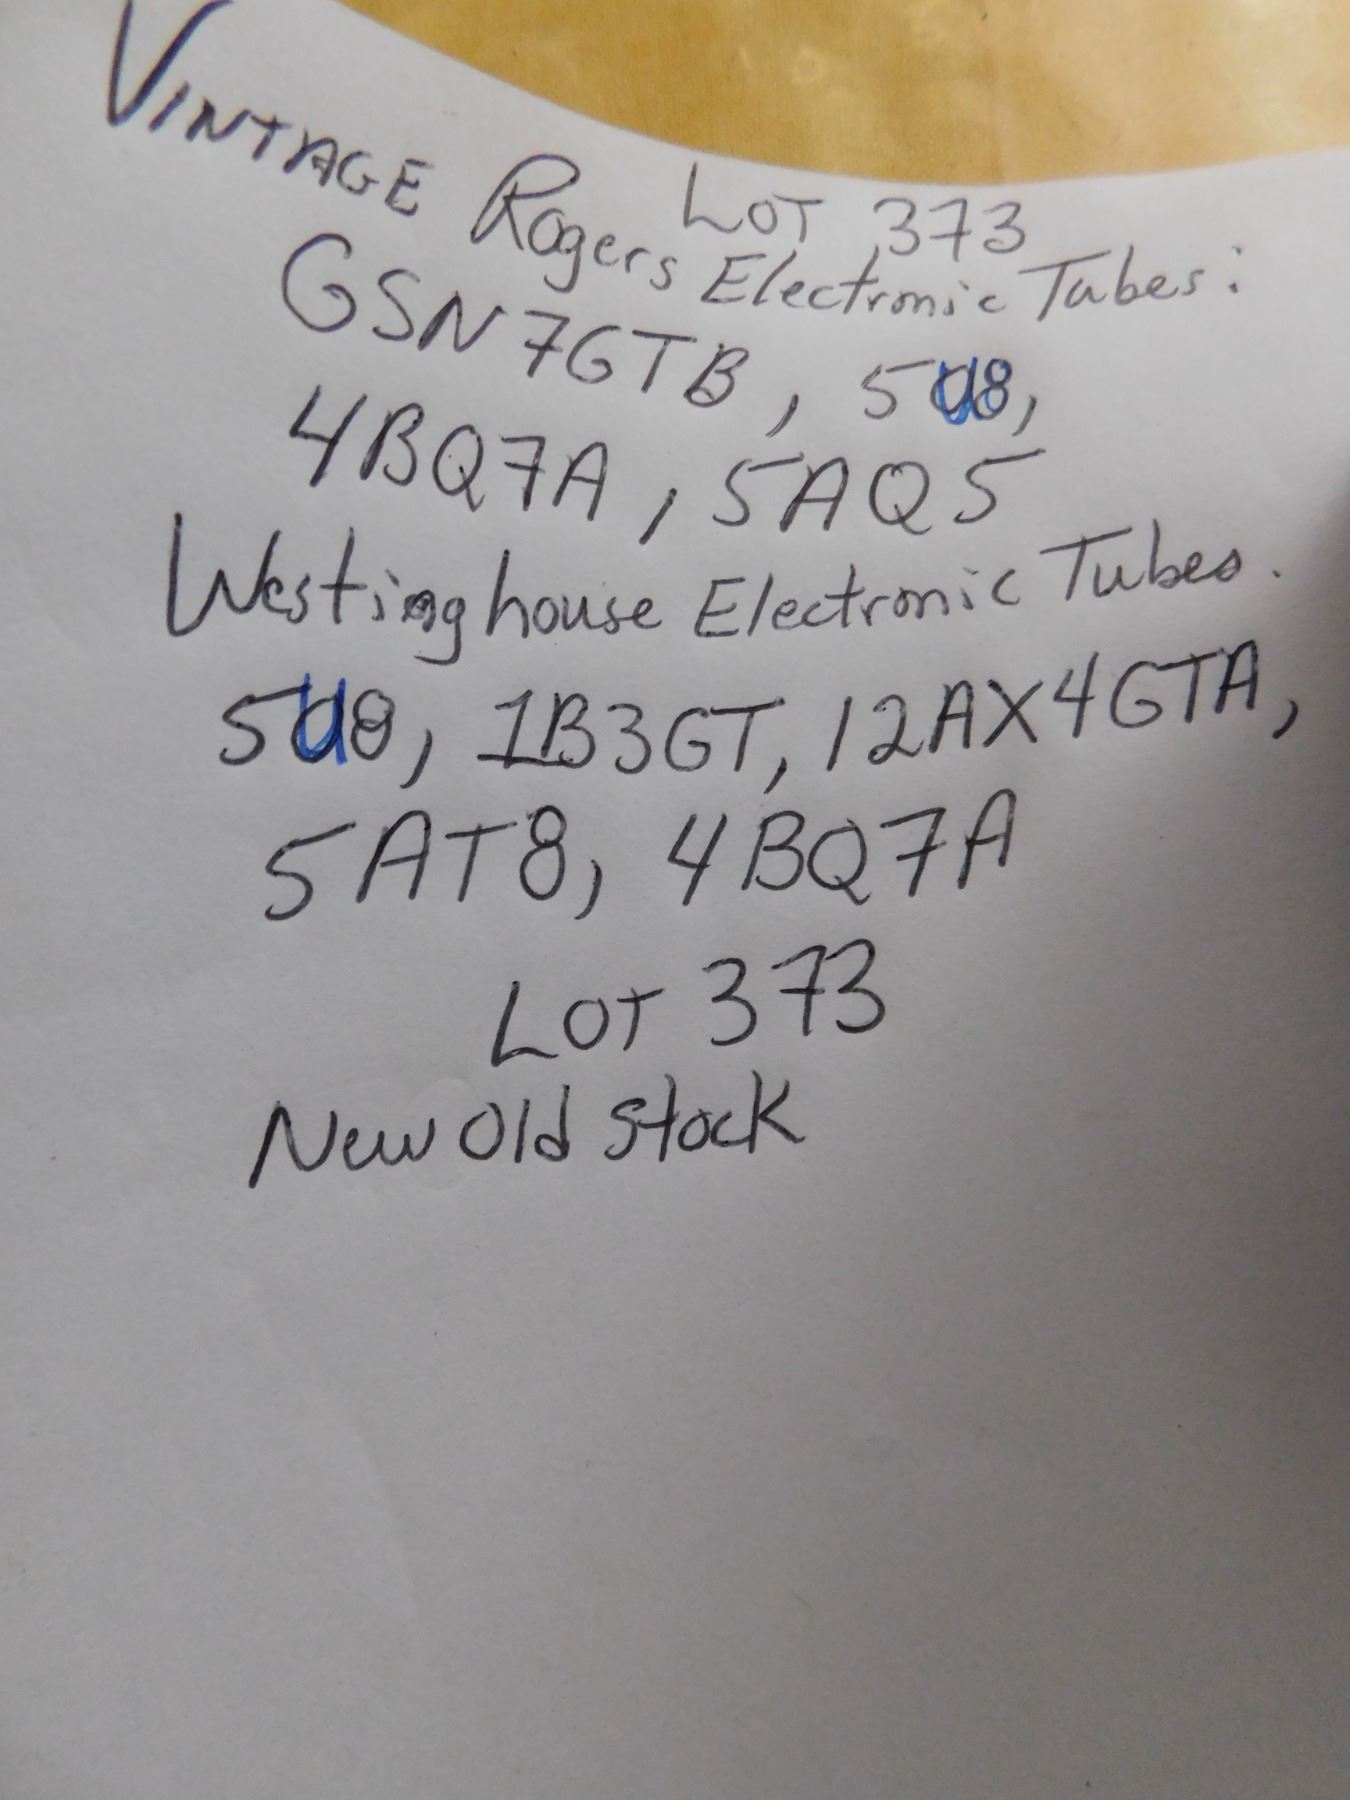 LOT 373
VINTAGE Rogers Electronic Tubes:
GSN7GTB, 5U8,
4BQ7A, 5AQ5
Westinghouse Electronic Tubes.
5U8, 1B3GT, 12AX4GTA,
5AT8, 4BQ7A
LOT 373
New Old Stock